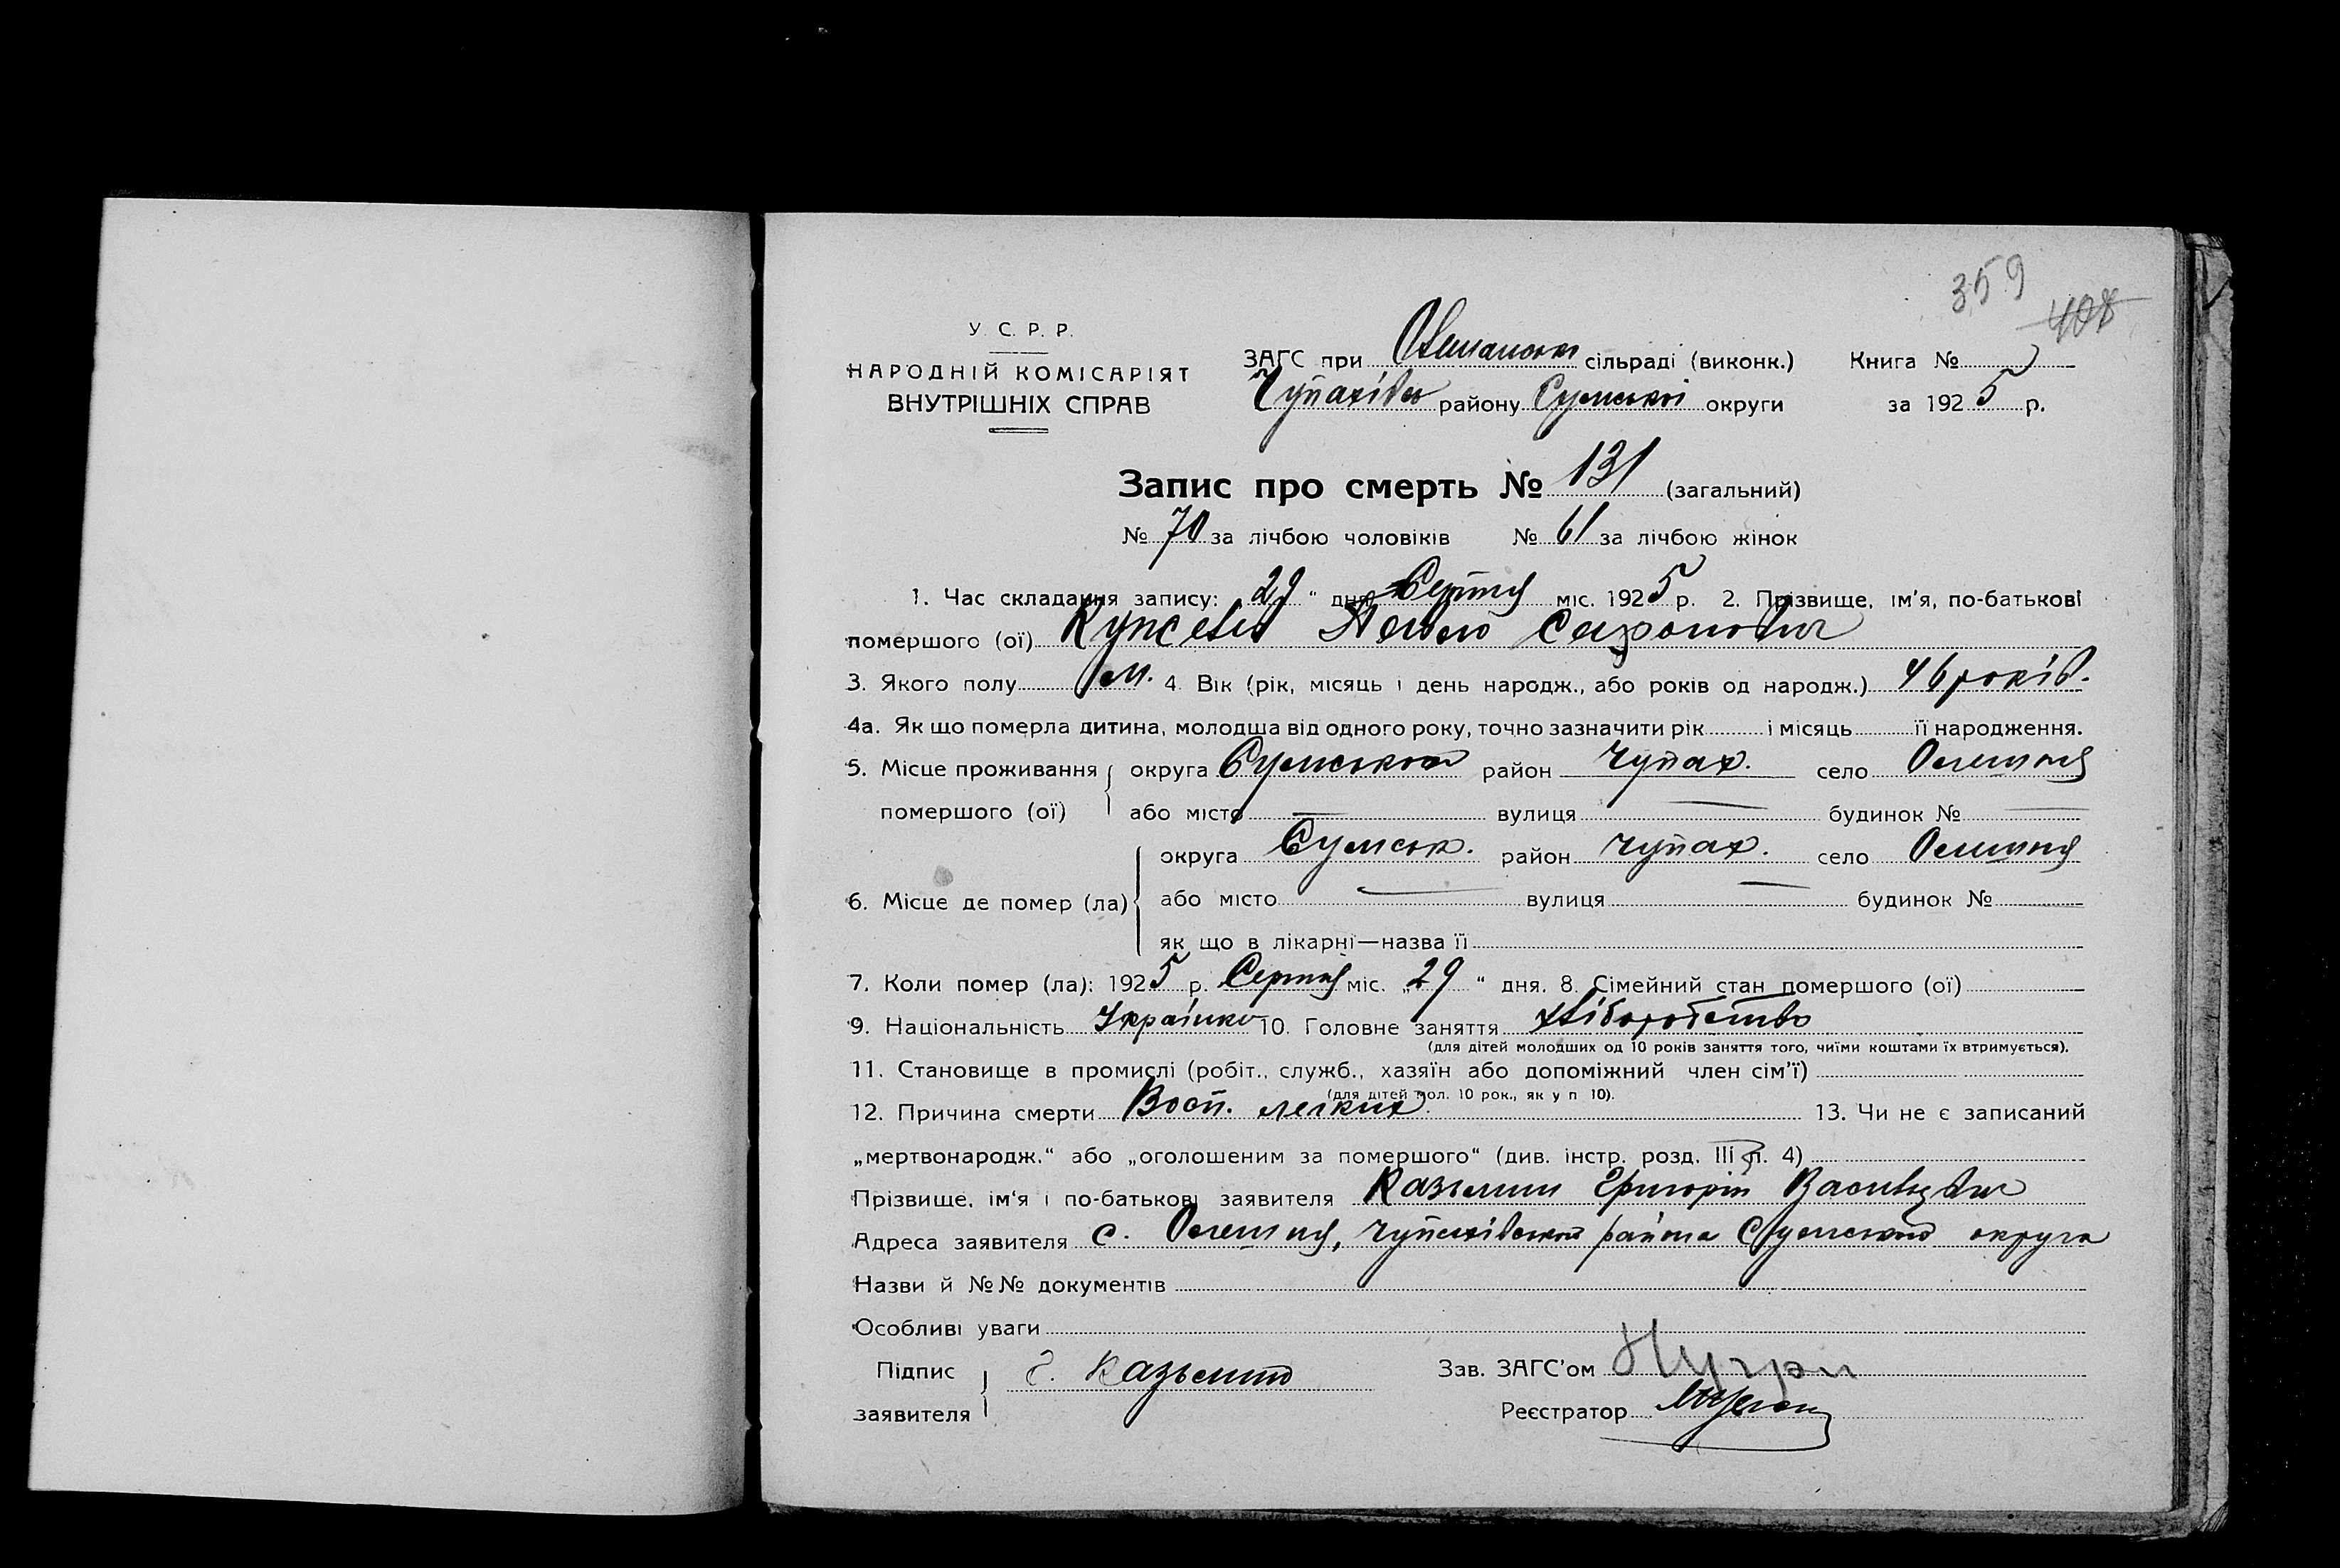 359
408
У. С. Р. Р.
НАРОДНІЙ КОМІСАРІЯТ
ВНУТРІШНІХ СПРАВ
ЗАГС при сільраді (виконк.) Книга №
Чупахівс району Сумської округи за 1925 р.
Запис про смерть № 131 (загальний)
№ 70 за лічбою чоловіків № 61 за лічбою жінок
1. Час складання запису: 29 " дня Серпня міс. 1925 р. 2. Прізвище, ім'я, по-батькові
помершого (ої)
3. Якого полу м. 4. Вік (рік, місяць і день народж., або років од народж.) 46 років.
4а. Як що померла дитина, молодша від одного року, точно зазначити рік і місяць її народження.
5. Місце проживання округа Сумського район Чупах. село Олешня
помершого (ої) або місто — вулиця — будинок № —
округа Сумськ. район Чупах. село Олешня
6. Місце де помер (ла) або місто — вулиця — будинок №
як що в лікарні—назва її
7. Коли помер (ла): 1925 р. Серпня міс. „29 " дня. 8. Сімейний стан помершого (ої)
9. Національність 10. Головне заняття хліборобство
(для дітей молодших од 10 років заняття того, чиїми коштами їх втримується).
11. Становище в промислі (робіт., служб., хазяїн або допоміжний член сім'ї)
(для дітей мол. 10 рок., як у п 10).
12. Причина смерти Восп. легких. 13. Чи не є записаний
„мертвонародж." або „оголошеним за помершого" (див. інстр. розд. III п. 4)
Прізвище, ім'я і по-батькові заявителя Григорій
Адреса заявителя с. Олешня, Чупахівського района Сумського округа
Назви й №№ документів
Особливі уваги
Підпис Зав. ЗАГС'ом
заявителя Реєстратор